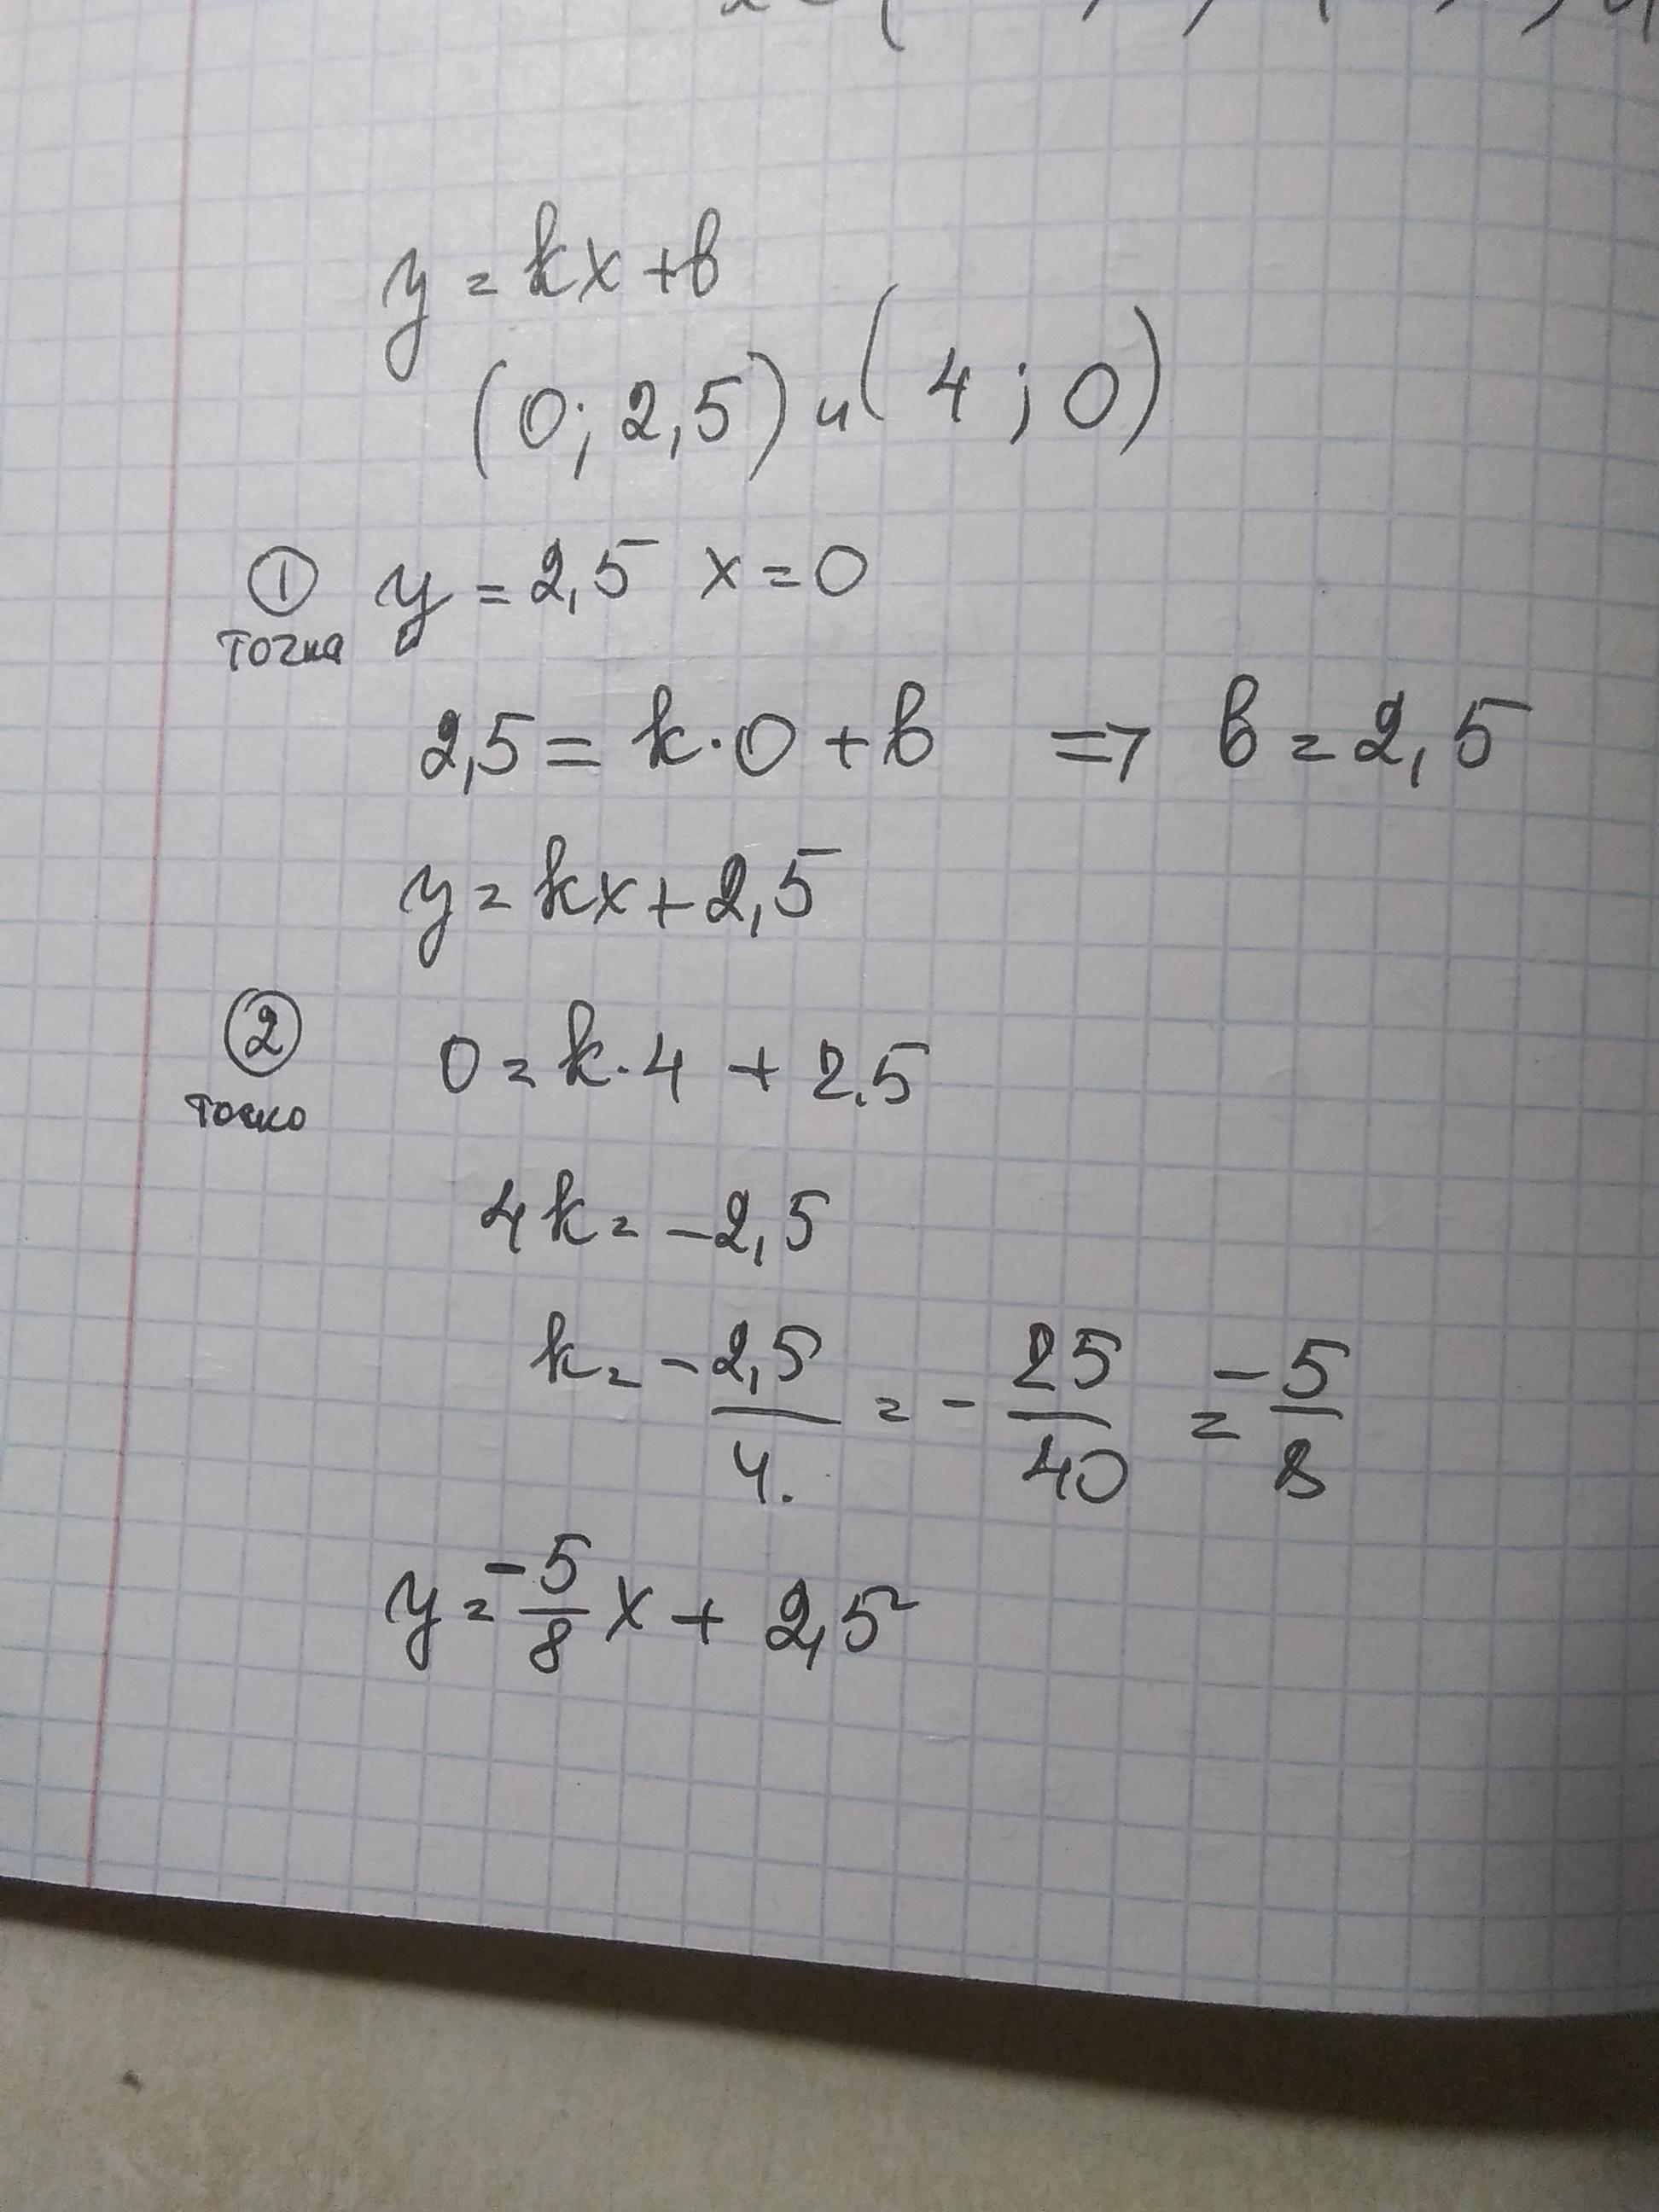 y = kx + b
(0; 2,5) и (4; 0)
① y = 2,5 x = 0
точка
2,5 = k·0 + b => b = 2,5
y = kx + 2,5
② 0 = k·4 + 2.5
точка
4k = -2,5
k = -2,5/4. = -25/40 = -5/8
y = -5/8 x + 2,5